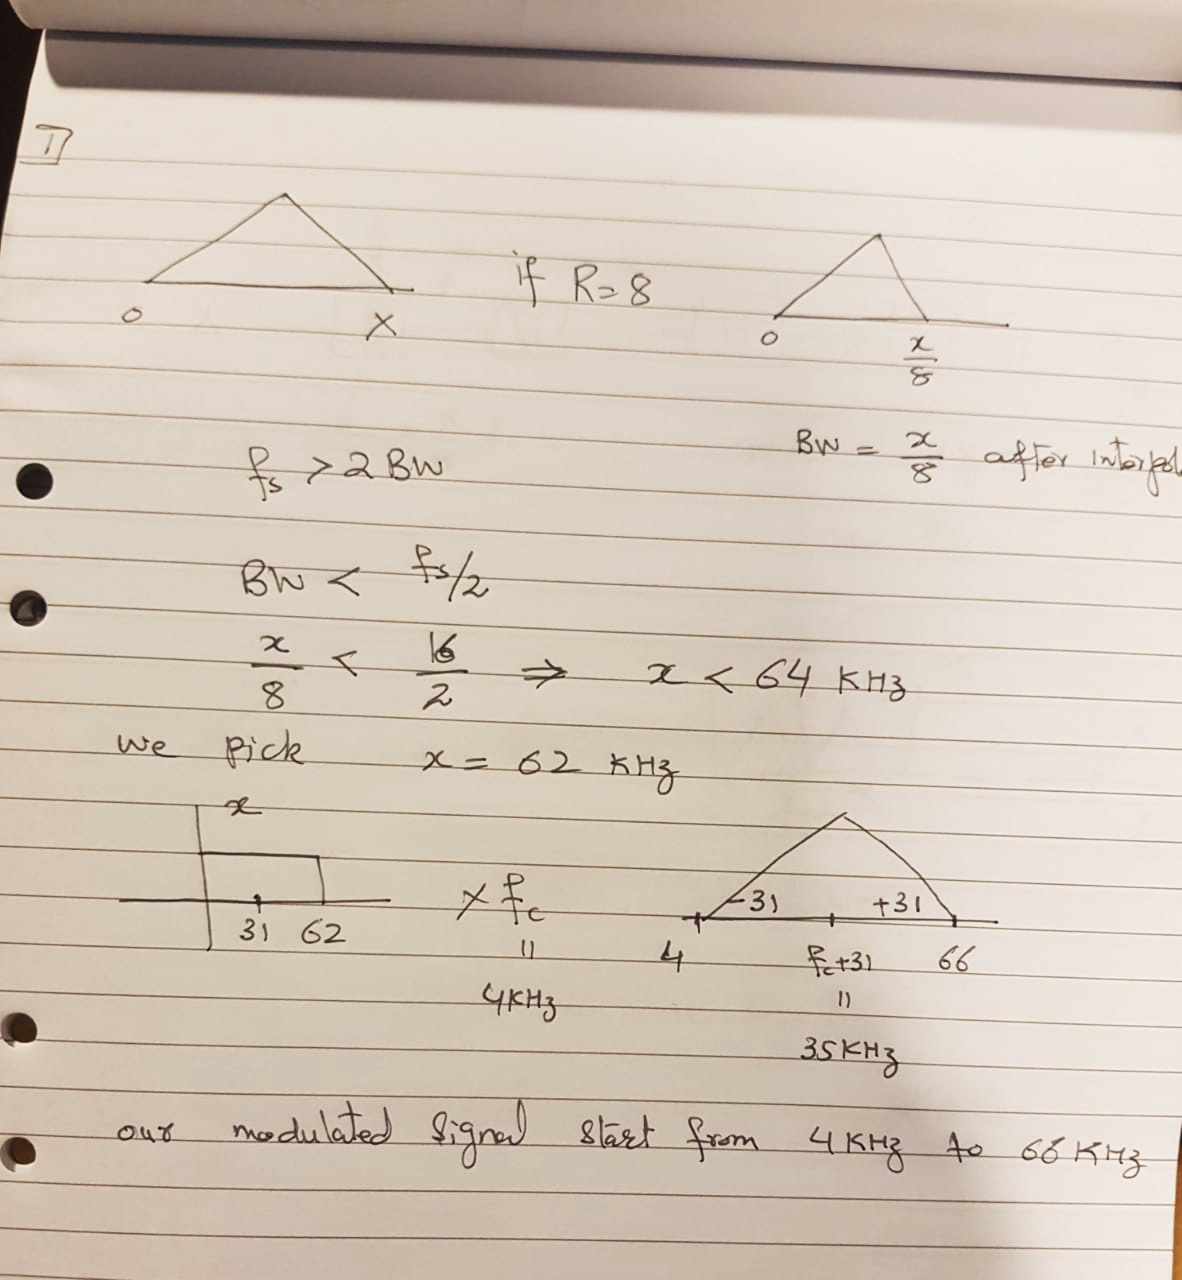 1]
if R=8
0 X
0 x/8
BW = x/8 after interpol
fs > 2 BW
BW < fs/2
x/8 < 16/2 ⇒ x < 64 KHz
we pick x = 62 KHz
x
-31 +31
× fc
31 62
4 fc+31 66
||
||
4KHz
35KHz
our modulated signal start from 4KHz to 66KHz